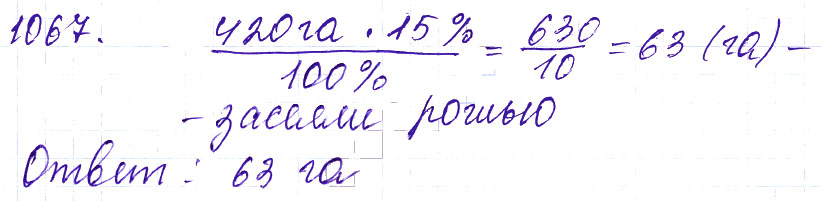 1067. 420га · 15% / 100% = 630 / 10 = 63 (га) –
– засеяли рожью
Ответ: 63 га